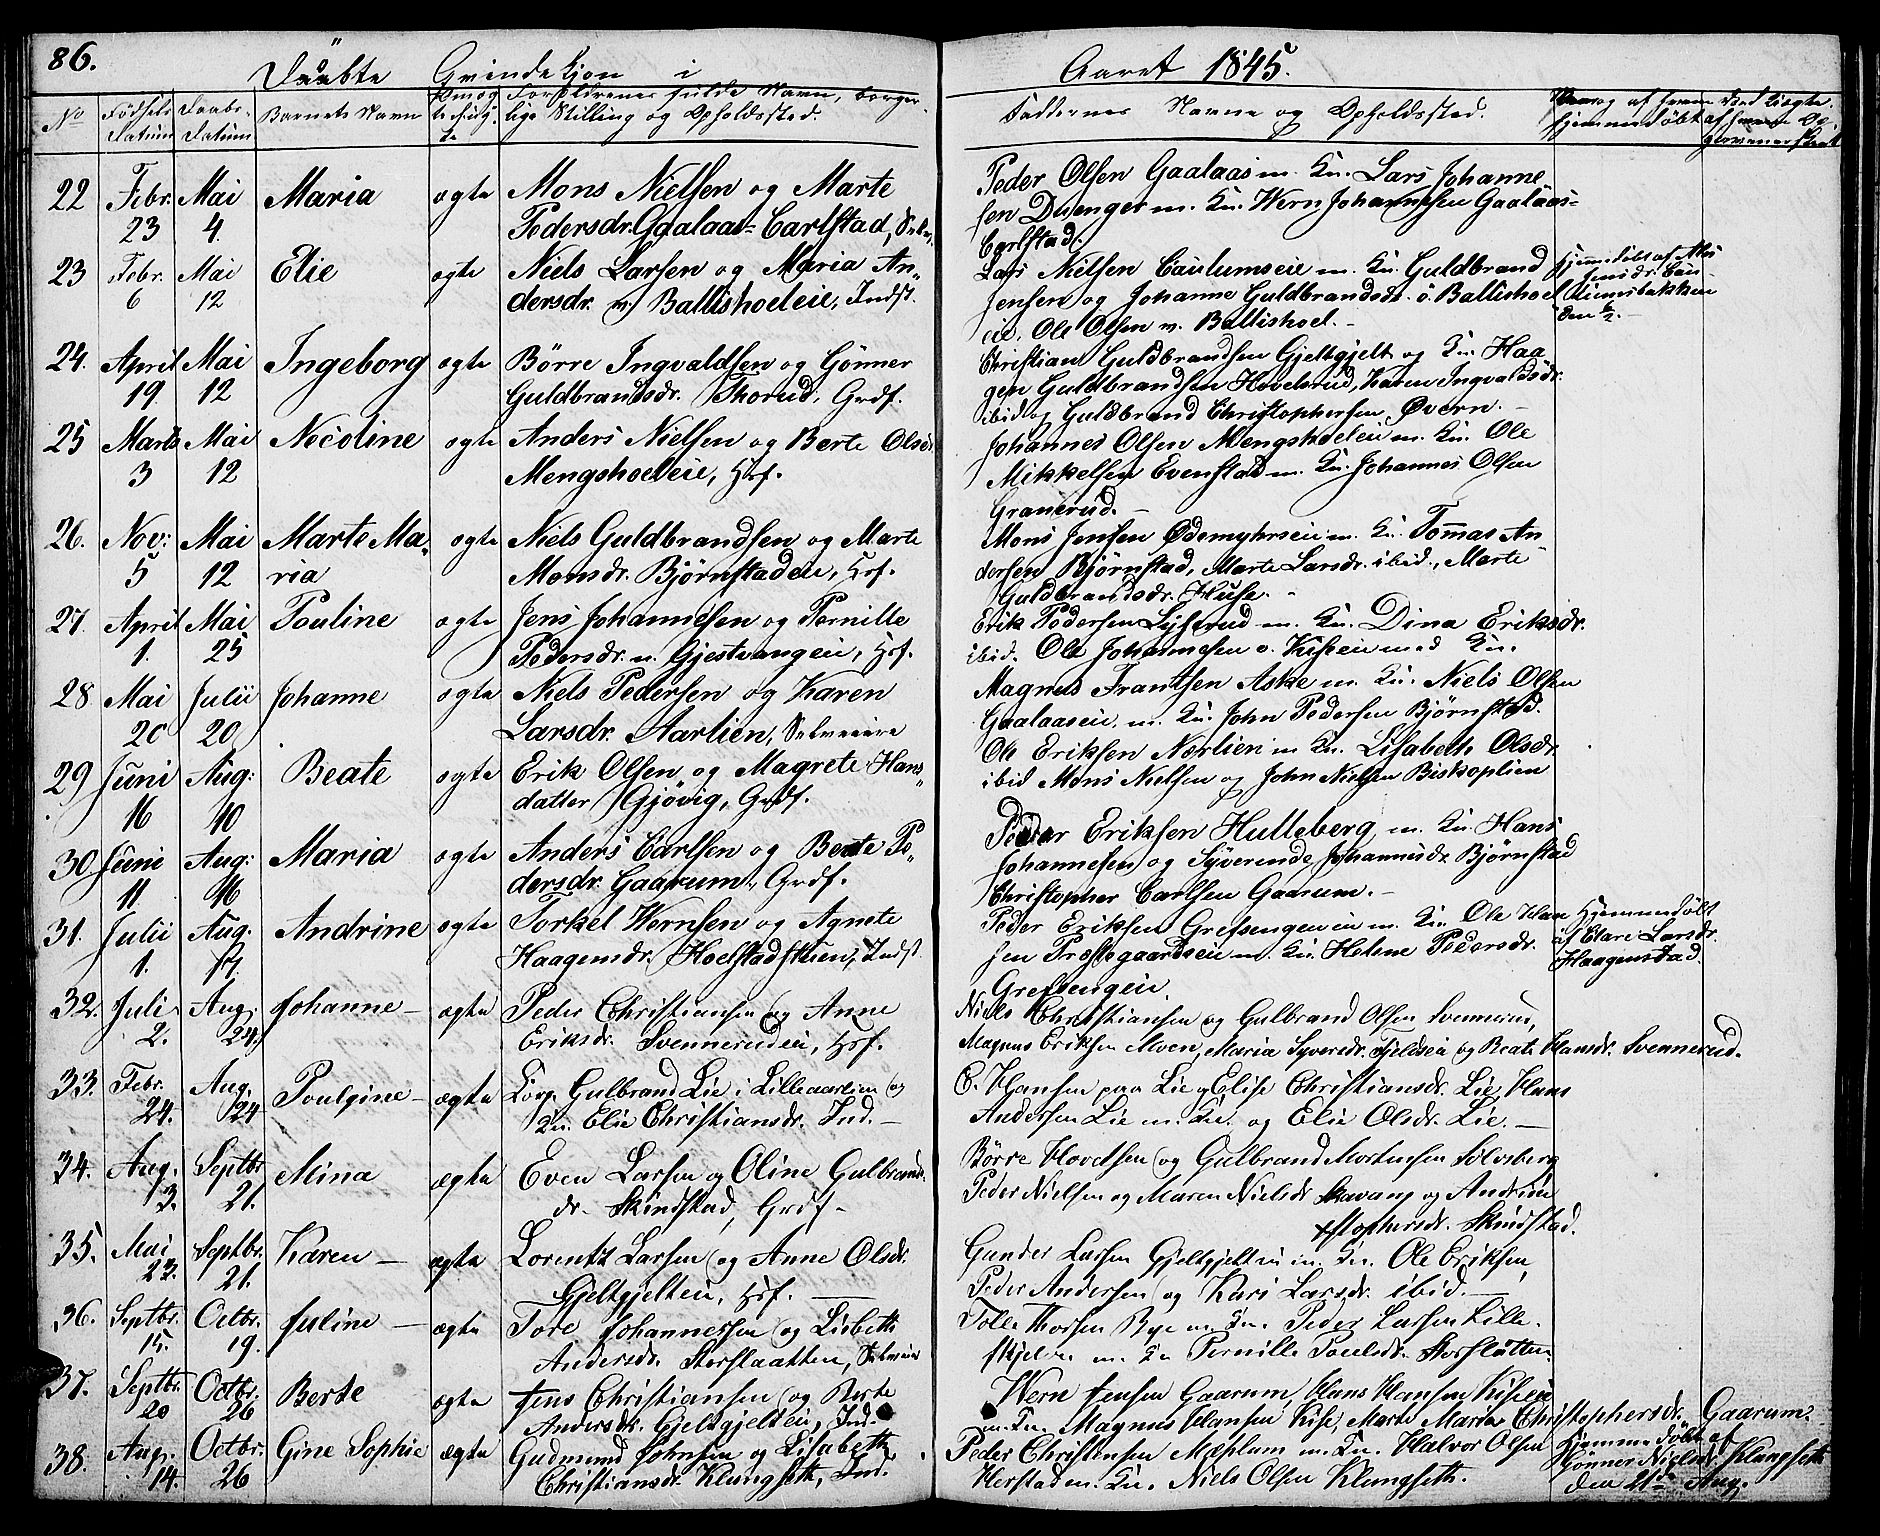 86.
Døbte Qvindekjøn i
Aaret 1845.
No
Fødsels Datum
Daabs Datum
Barnets Navn
Forældrenes fulde Navn, borger-
lige Stilling og Opholdssted.
Faddernes Navne og Opholdssted.
22 Febr. 23 Mai 4. Maria ægte Mons Nielsen og Marte
Pedersdr. Gaalaas-Carlstad, Selv.
Peder Olsen Gaalaas m. Ku. Lars Johanne
sen Duenger m. Ku. Wern Johannesen Gaalaas-
Carlstad.
23 Febr. 6 Mai 12 Elie ægte Niels Larsen og Maria An-
dersdr. v. Ballishoeleie, Indst.
Lars Nielsen Caulumseie m. Ku. Guldbrand
Jensen og Johanne Guldbrandsdr. ö. Ballishoel
eie. Ole Olsen v. Ballishoel.
24. April 19 Mai 12 Ingeborg ægte Börre Ingvaldsen og Gönner
Guldbrandsdr. Thorud, Grdf.
Christian Guldbrandsen Gjeltgjelt og Ku. Haa
gen Guldbrandsen Hovelsrud, Karen Ingvaldsdr.
ibid og Guldbrand Christophersen Øvern.
25 Marts 3 Mai 12 Nicoline ægte Anders Nielsen og Berte Olsdr.
Mengshoeleie, Hsf.
Johannes Olsen Mengshoeleie m. Ku. Ole
Mikkelsen Evenstad m. Ku. Johannes Olsen
Granerud.
26. Nov: 5 Mai 12 Marte Ma-
ria ægte Niels Guldbrandsen og Marte
Monsdr. Björnstadeie, Hsf.
Mons Jensen Ødemyhrseie m. Ku. Tommas An
dersen Björnstad, Marte Larsdr. ibid., Marte
Guldbrandsdr. Huse.
27. April 1. Mai 25 Pouline ægte Jens Johannesen og Pernille
Pedersdr. n. Gjestvangeie, Hsf.
Erik Pedersen Lystrud m. Ku. Dina Eriksdr.
ibid. Ole Johannesen v. Kiseeie med Ku.
28 Mai 20 Julii 20 Johanne ægte Niels Pedersen og Karen
Larsdr. Aarlien, Selveiere
Magnus Frantsen Aske m. Ku. Niels Olsen
Gaalaaseie m. Ku. John Pedersen Björnstad.
29 Juni 16 Aug: 10 Beate ægte Erik Olsen og Magrete Hans-
datter Gjövig, Grdf.
Ole Eriksen Nærlien m Ku. Lisabeth Olsdr.
ibid Mons Nielsen og John Nielsen Biskoplien
30 Juni 11 Aug: 16 Maria ægte Anders Carlsen og Beate Pe-
dersdr. Gaarum, Grdf.
Peder Eriksen Hulleberg m. Ku. Hans
Johannesen og Syverende Johannesdr. Björnstad
Christopher Carlsen Gaarum.
31. Julii 1. Aug. 17. Andrine ægte Torkel Wernsen og Agnete
Haagensdr. Hoelstadstuen, Indst
Peder Eriksen Grefsengeneie m. Ku. Ole Han
sen Præstegaardseie m. Ku. Helene Pedersdr.
Grefsengeie.
Hjemmedöbt
af Clare Larsdr.
Haagenstad.
32. Juli 2. Aug. 24. Johanne ægte Peder Christiansen og Anne
Eriksdr. Svennerudeie, Hsf.
Niels Christiansen og Gulbrand Olsen Svennerud,
Magnus Eriksen Moen, Maria Syversdr. Fjeldseie og Beate Hansdr. Svennerud.
33. Febr. 24. Aug. 24 Poulgine ægte Corp. Gulbrand Lie i Lilleaarlien og
Ku. Elie Christiansdr. Ind.
C. Hansen paa Lie og Elise Christiansdr. Lie, Hans
Andersen Lie m. Ku. og Elie Olsdr. Lie.
34. Aug. 3. Septbr 21. Mina ægte Even Larsen og Oline Gulbrands-
dr. Skindstad, Grdf.
Börre Hovelsen og Gulbrand Mortensen Solvsberg
Peder Nielsen og Maren Nielsdr Skavang og Andrine
Xstophersdr. Skindstad.
35. Mai 23. Septbr. 21. Karen ægte Lorentz Larsen og Anne Olsdr.
Gjeltgjelteie, Hsf.
Gunder Larsen Gjeltgjelteie m. Ku. Ole Eriksen,
Peder Andersen og Kari Larsdr. ibid.
36. Septbr. 15. Octbr. 19. Juline ægte Tore Johannessen og Lisbeth
Andersdr. Storslaatten, Selveier
Tolle Thorsen Bye m. Ku. Peder Larsen Lille-
skjel m. Ku Pernille Poulsdr. Storslåtten.
37. Septbr. 20 Octbr. 26 Berte ægte Jens Christiansen og Berte
Andersdr. Gjeltgjelteie, Ind.
Wern Jensen Gaarum, Hans Hansen Kiseeie
m. Ku. Magnus Hansen Kise, Marte Maria Christophersdr. Gaarum.
38. Aug. 14. Octbr. 26 Gine Sophie ægte Gudmund Johnsen og Lisabeth
Christiansdr. Klungseth, Ind.
Peder Christensen Mæhlum m. Ku. Halvor Olsen
Herstad m. Ku. Niels Olsen Klungseth.
Hjemmedöbt af
Gönner Nielsdr. Klungseth
den 21de Aug.